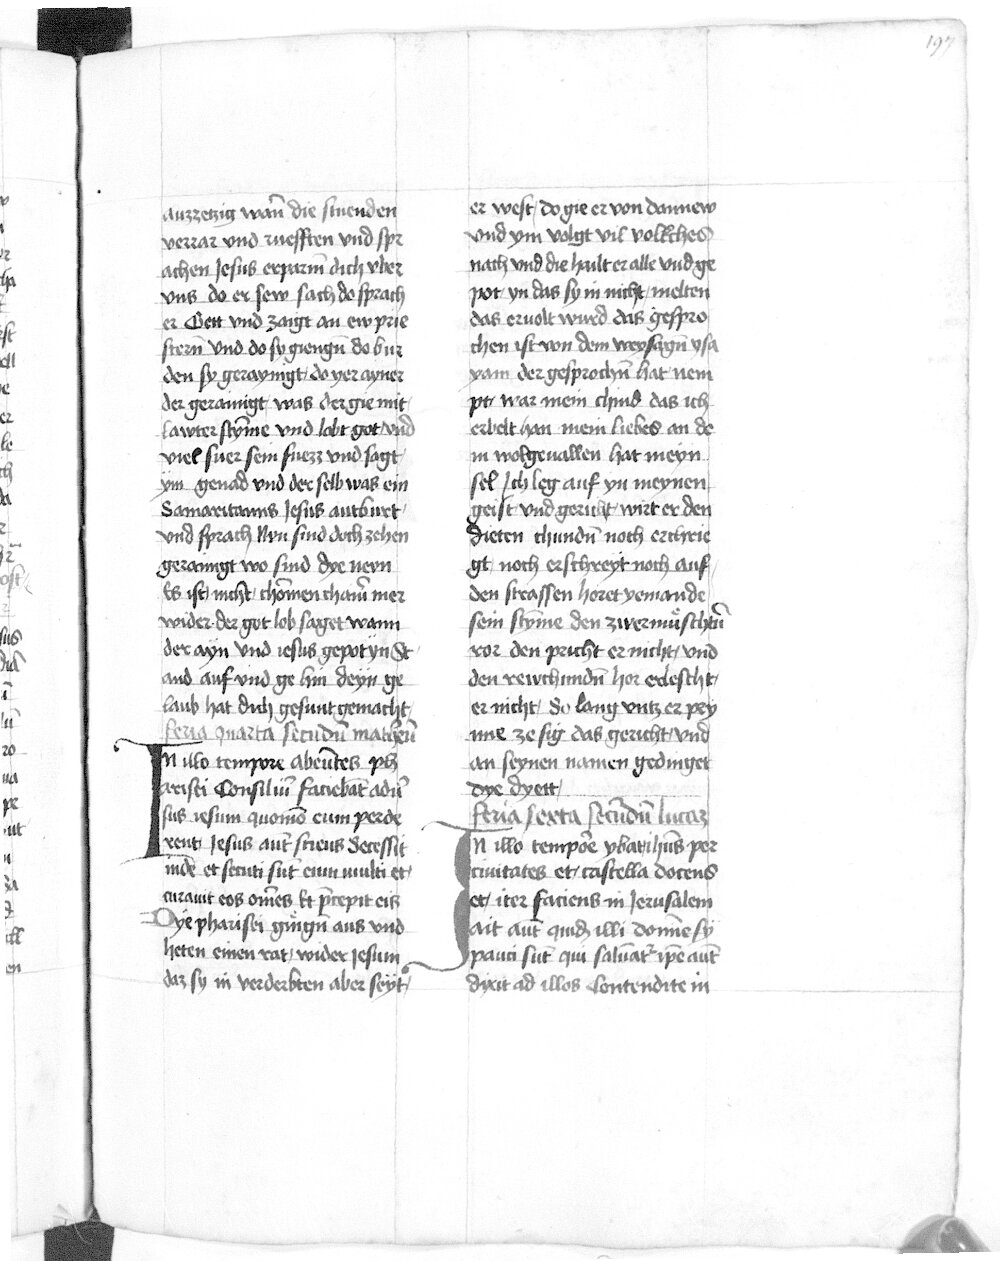 197
auzzetzig wan̄ die stuenden
verrar vnd ruefften vnd spr
achen Jesus erparm̄ dich vber
vns do er sew sach do sprach
er Gett vnd zaigt an ew prie
stern̄ vnd do sy giengn̄ do bur
den sy geraynigt do yer ayner
der gerainigt was der gie mit
lawter stȳme vnd lobt got vnd
viel fuer sein fuezz vnd sagt
ym genad vnd der selb was ein
Samaritanus Jesus antburt
vnd sprach Nyn sind doch zehen
gerainigt wo sind dye neyn
Es ist nicht chōmen cham̄ mer
wider der got lob saget wann
der ayn vnd iesus gepot yn St
and auf vnd ge hin deyn ge
laub hat dich gesunt gemacht
feria quarta secundū matheū
In illo tempore abeūtes ph
arisei Consiliū faciebāt adū
sus iesum quomō eum perde
rent Jesus aut̄ sciens secessit
inde et secuti sūt eum multi et
curauit eos om̄es Et p̄cepit eis
Dye pharisei gingn̄ aus vnd
heten einen rat wider Jesum
daz sy in verderbten aber seyt
er west do gie er von dannew
vnd ym volgt vil vollches
nach vnd die hailt er alle vnd ge
pot yn das sy in nicht melten
das ervolt wurd das gespro
chen ist von dem weysagn̄ ysa
yam der gesprochn̄ hat nem
pt war mein chind das ich
erbelt han mein liebes an de
m wolgeuallen hat meyn
sel Jch leg auf yn meynen
geist vnd gericht wirt er den
dieten chundn̄ noch erchrie
gt noch erschreyt noch auf
den strassen horet yemande
sein stȳme den zwermuͤschtn̄
ror den pricht er nicht vnd
den rewchundn̄ hor erlescht
er nicht So lang vntz er pry
nne ze sig das gericht vnd
an seynen namen gedinget
dye dyett
feria sexta secundū lucaz
In illo tempoꝛe ybat ihūs per
ciuitates et castella docens
et iter faciens in Jerusalem
ait aut̄ quidā illi domīne sy
pauci sūt qui saluāt ip̄e aut̄
dixit ad illos Contendite in